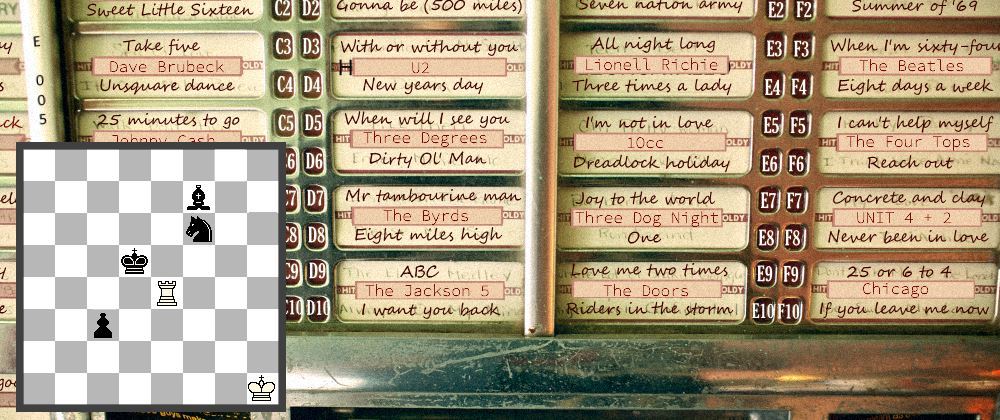 Sweet Little Sixteen
C2 D2
Gonna be (500 miles)
Seven nation army
E2 F2
Summer of '69
E
005
Take five
Dave Brubeck
OLDY
Unsquare dance
C3 D3
C4 D4
With or without you
U2
OLDY
New years day
All night long
HIT Lionell Richie OLDY
Three times a lady
E3 F3
E4 F4
When I'm sixty-fou
HIT The Beatles
Eight days a week
25 minutes to go
Johnny Cash
C5 D5
D6
When will I see you
HIT Three Degrees OLDY
Dirty Ol' Man
I'm not in love
HIT 10cc OLDY
Dreadlock holiday
E5 F5
E6 F6
I can't help myself
HIT The Four Tops OLDY
Reach out
D7
D8
Mr tambourine man
HIT The Byrds OLDY
Eight miles high
Joy to the world
HIT Three Dog Night OLDY
One
E7 F7
E8 F8
Concrete and clay
HIT UNIT 4 + 2 OLDY
Never been in love
D9
D10
ABC
HIT The Jackson 5 OLDY
I want you back
Love me two times
HIT The Doors OLDY
Riders in the storm
E9 F9
E10 F10
25 or 6 to 4
HIT Chicago OLDY
If you leave me now